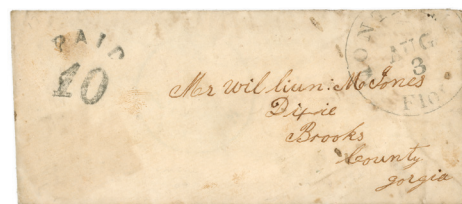 PAID
10
AUG
3
Flo
Mr William: M Jones
Dixie
Brooks
County
gorgia